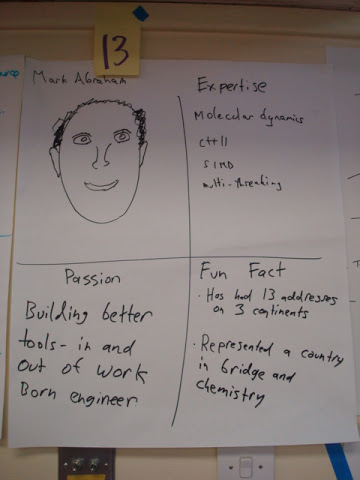 13
Mark Abraham
Expertise
Molecular dynamics
C++11
SIMD
multi-threading
Passion
Building better
tools - in and
out of work
Born engineer
Fun Fact
· Has had 13 addresses
on 3 continents
· Represented a country
in bridge and
chemistry